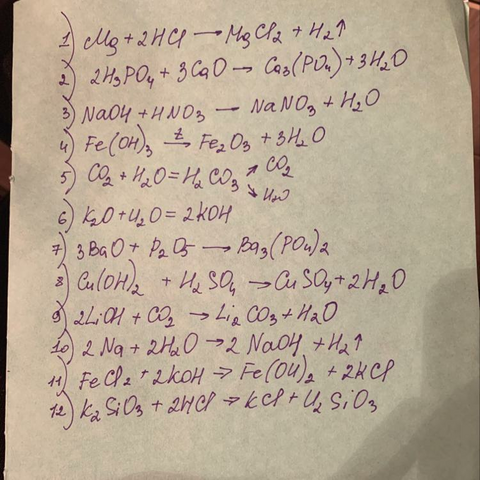 1) Mg + 2HCl → MgCl2 + H2↑
2) 2H3PO4 + 3CaO → Ca3(PO4) + 3H2O
3) NaOH + HNO3 — NaNO3 + H2O
4) Fe(OH)3 →t Fe2O3 + 3H2O
5) CO2 + H2O = H2CO3 ↗ CO2 ↘ H2O
6) K2O + H2O = 2KOH
7) 3BaO + P2O5 → Ba3(PO4)2
8) Cu(OH)2 + H2SO4 → CuSO4 + 2H2O
9) 2LiOH + CO2 → Li2CO3 + H2O
10) 2Na + 2H2O → 2NaOH + H2↑
11) FeCl2 + 2KOH → Fe(OH)2 + 2KCl
12) K2SiO3 + 2HCl → KCl + H2SiO3